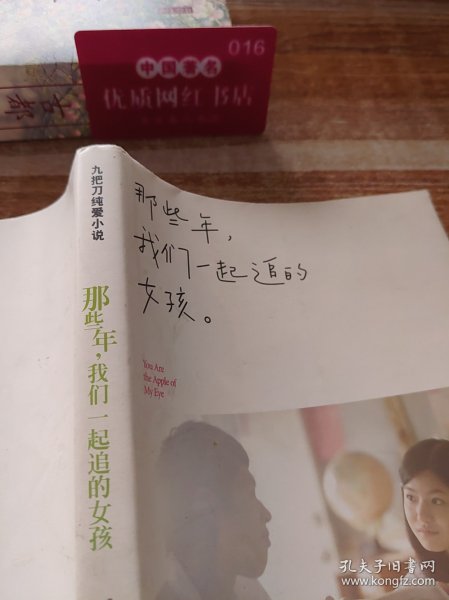 016
中国著名
优质网红书店
古都
九把刀纯爱小说
那些年，我们一起追的女孩
那些年，
我们一起追的
女孩。
You Are
the Apple of
My Eye
孔夫子旧书网
www.kongfz.com